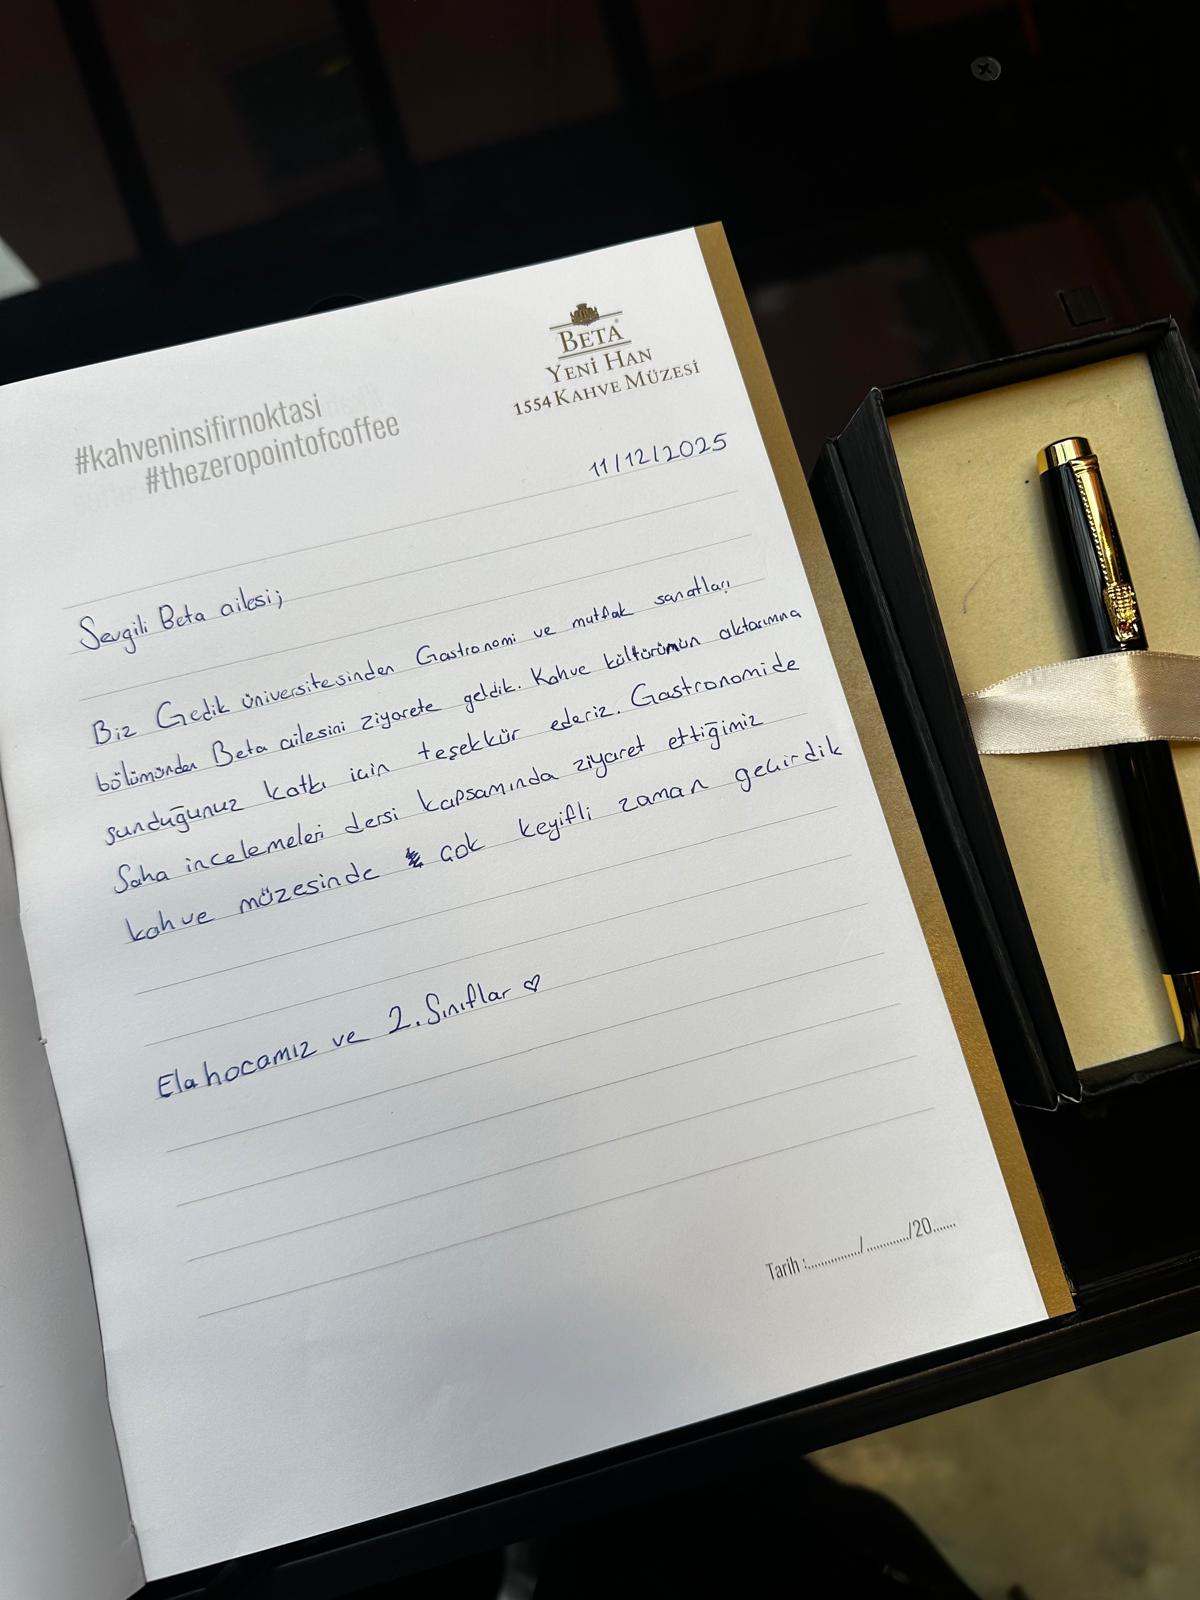 #kahveninsifirnoktasi
#thezeropointofcoffee
BETA
YENİ HAN
1554 KAHVE MÜZESİ
11/12/2025
Sevgili Beta ailesi;
Biz Gedik üniversitesinden Gastronomi ve mutfak sanatları
bölümünden Beta ailesini ziyarete geldik. Kahve kültürünün aktarımına
sunduğunuz katkı için teşekkür ederiz. Gastronomide
Saha incelemeleri dersi kapsamında ziyaret ettiğimiz
kahve müzesinde çok keyifli zaman geçirdik
Ela hocamız ve 2. Sınıflar ♡
Tarih :............../.........../20......